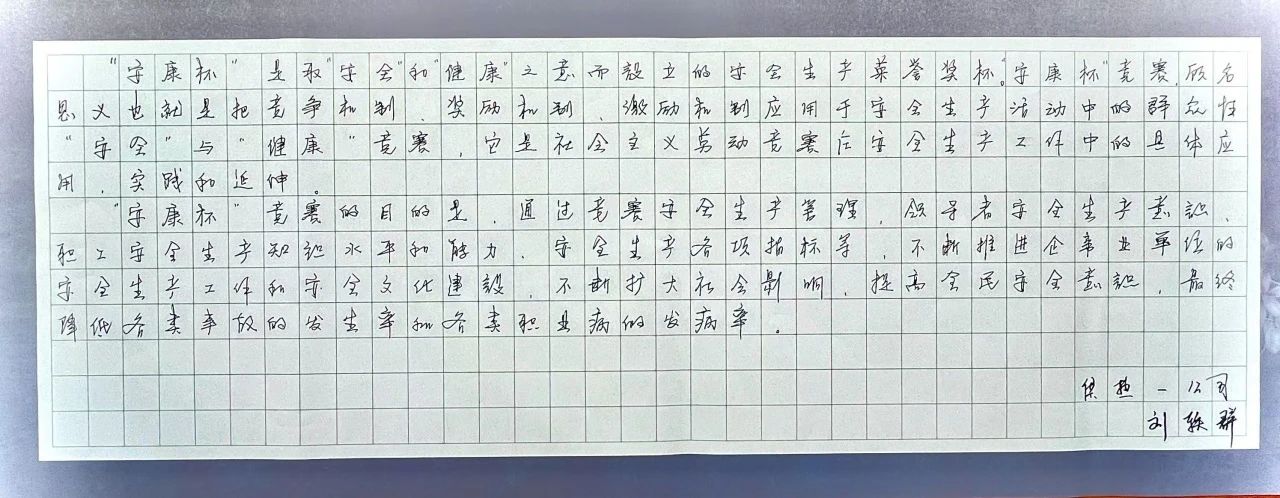 “安康杯”是取“安全”和“健康”之意而設立的安全生产荣誉奖杯。“安康杯”竞赛,顾名
思义也就是把竞争机制、奖励机制、激励机制应用于安全生产活动中的群众性
“安全”与“健康”竞赛,它是社会主义劳动竞赛在安全生产工作中的具体应
用、实践和延伸。
“安康杯”竞赛的目的是,通过竞赛安全生产管理、领导者安全生产意識、
职工安全生产知织水平和能力、安全生产各项指标等,不断推进企事业单位的
安全生产工作和安全文化建設,不断扩大社会影响,提高全民安全意識,最终
降低各类事故的发生率和各类职业病的发病率。
供热一公司
刘 群